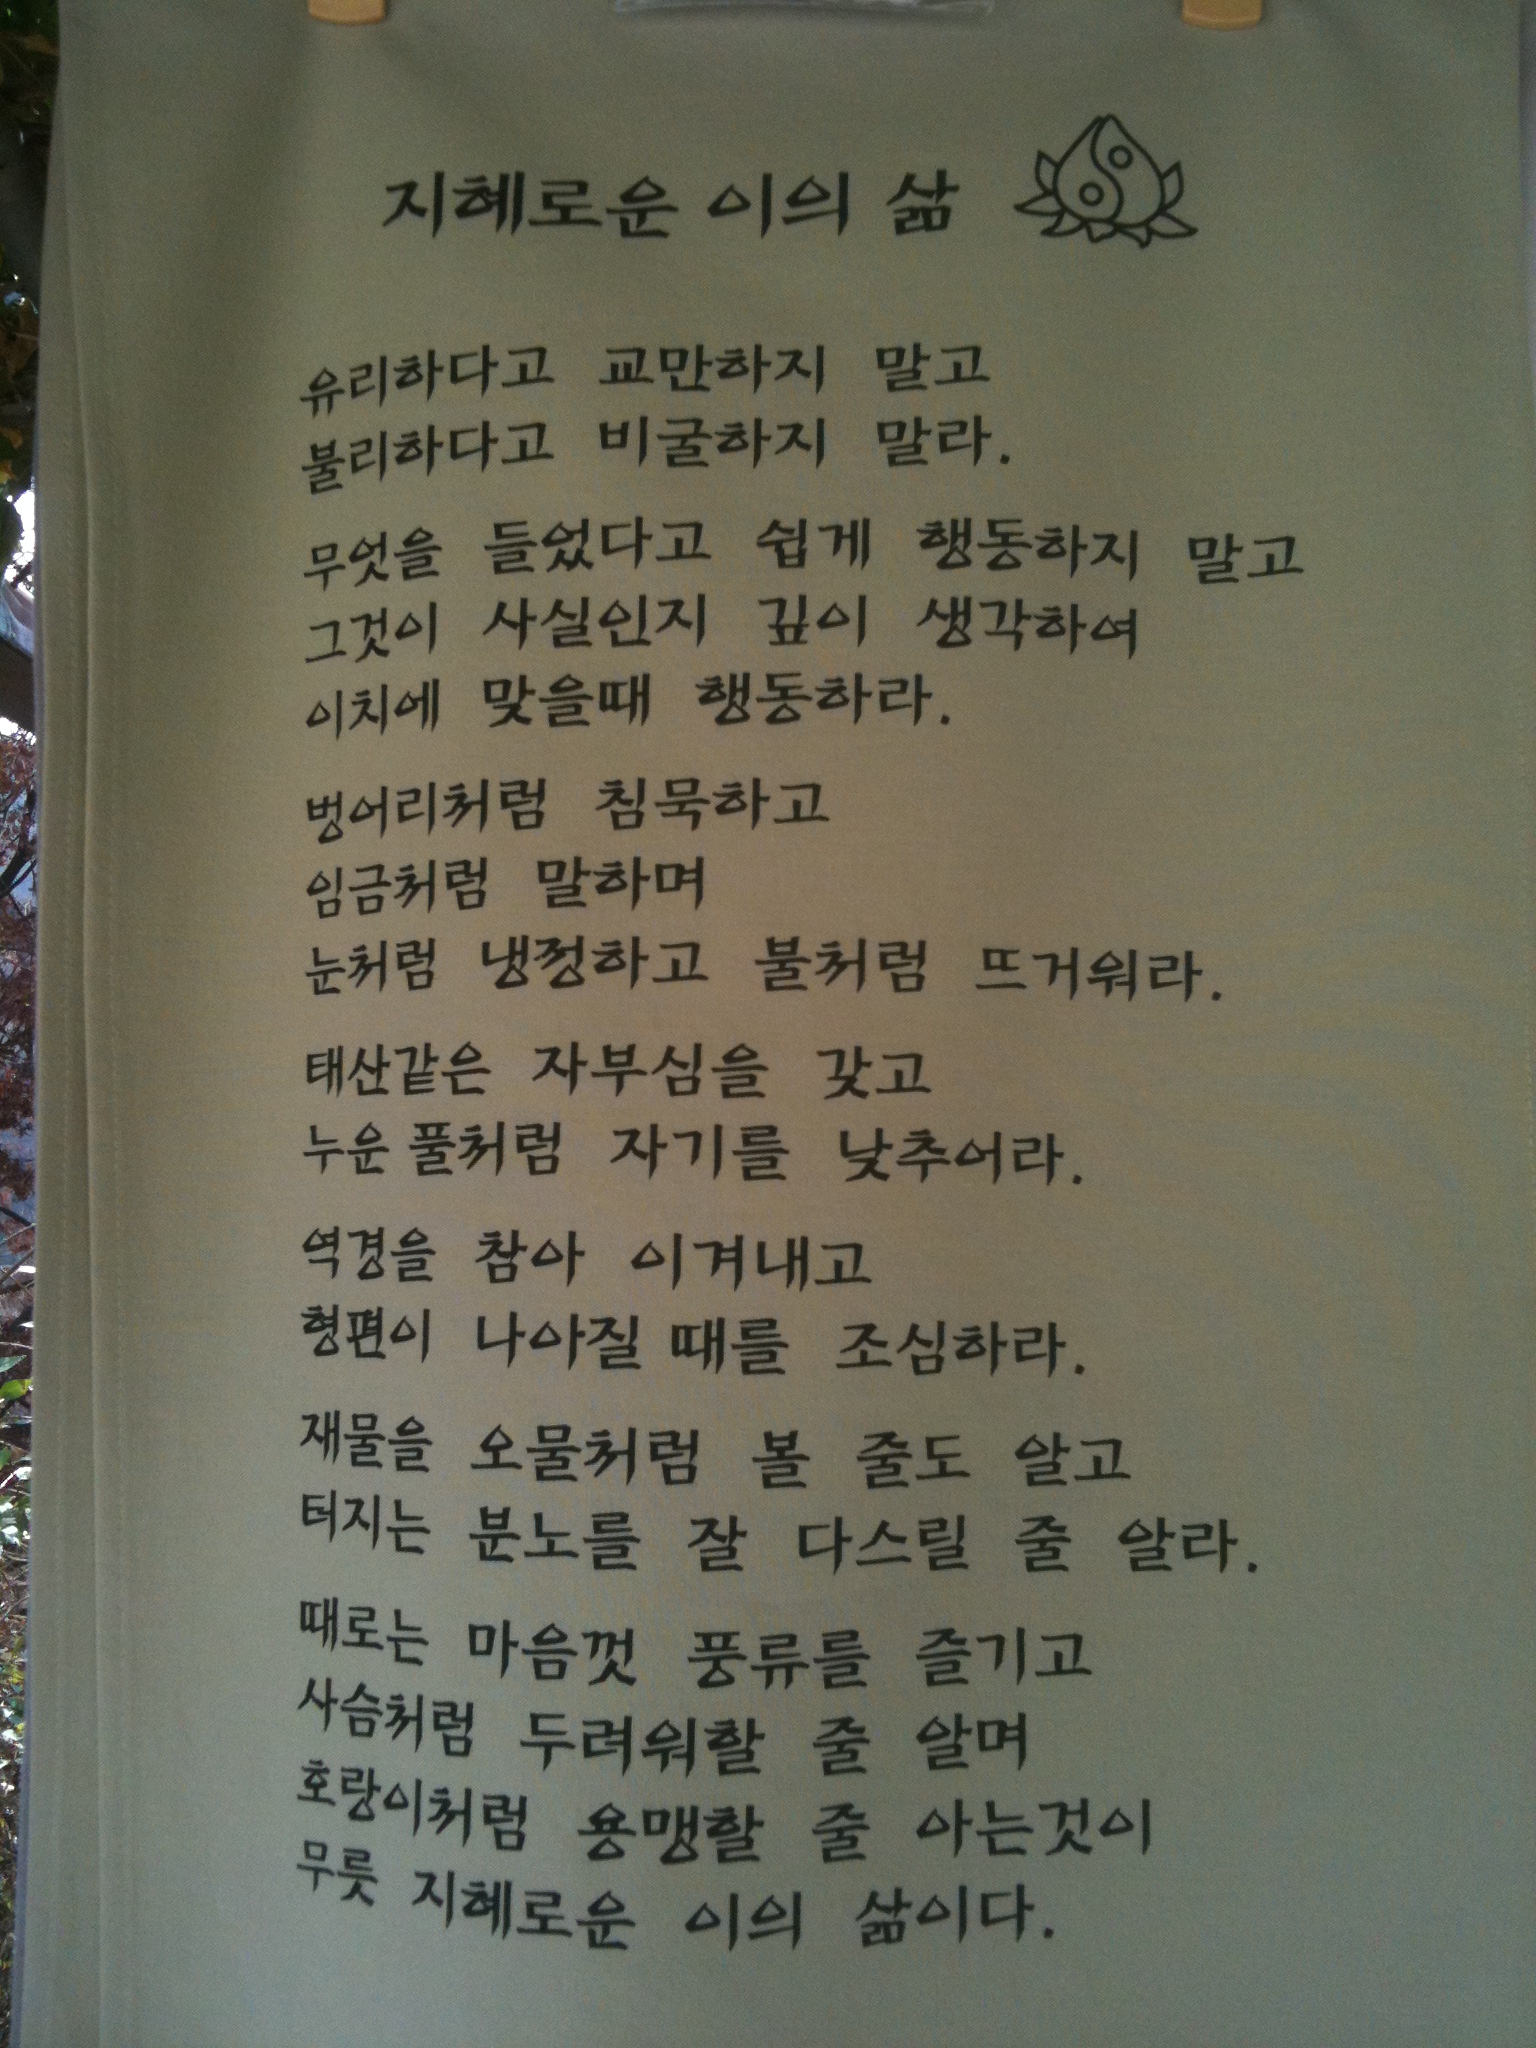 지혜로운 이의 삶
유리하다고 교만하지 말고
불리하다고 비굴하지 말라.
무엇을 들었다고 쉽게 행동하지 말고
그것이 사실인지 깊이 생각하여
이치에 맞을때 행동하라.
벙어리처럼 침묵하고
임금처럼 말하며
눈처럼 냉정하고 불처럼 뜨거워라.
태산같은 자부심을 갖고
누운 풀처럼 자기를 낮추어라.
역경을 참아 이겨내고
형편이 나아질 때를 조심하라.
재물을 오물처럼 볼 줄도 알고
터지는 분노를 잘 다스릴 줄 알라.
때로는 마음껏 풍류를 즐기고
사슴처럼 두려워할 줄 알며
호랑이처럼 용맹할 줄 아는것이
무릇 지혜로운 이의 삶이다.